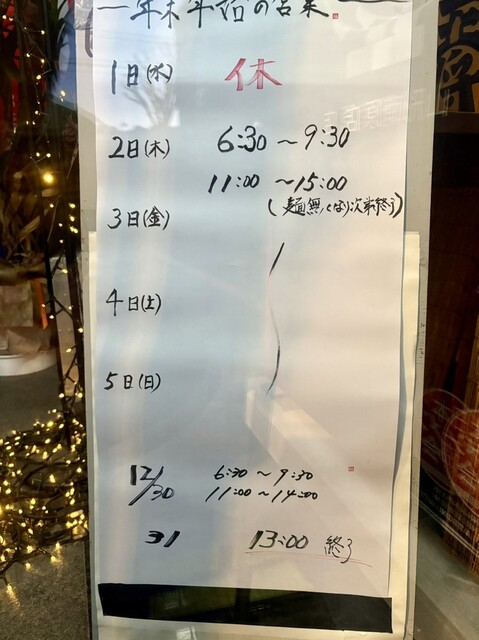 年末年始の営業
1日(水) 休
2日(木) 6:30～9:30
11:00～15:00
(麺無くなり次第終了)
3日(金)
4日(土)
5日(日)
12/30 6:30～9:30
11:00～14:00
31 13:00 終了